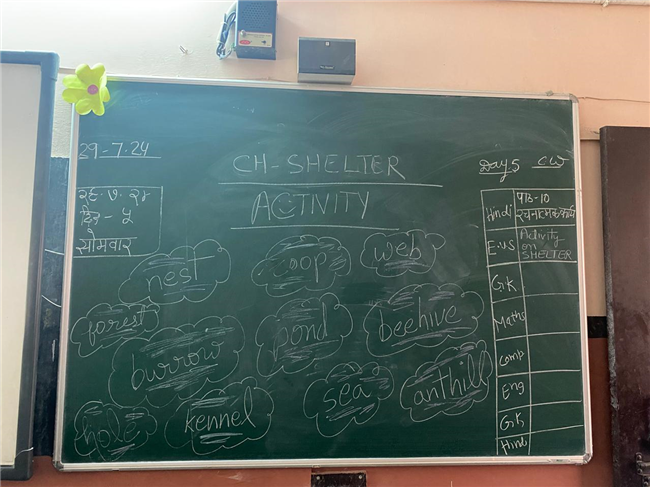 29-7.24
CH-SHELTER
ACTIVITY
Day 5 CW
२९.७.२४
दिन - ५
सोमवार
nest
coop
web
forest
burrow
pond
beehive
hole
kennel
sea
anthill
Hindi पाठ-10
रचनात्मक कार्य
E.V.S Activity
on
SHELTER
G.K
Maths
Comp
Eng
G.K
Hindi